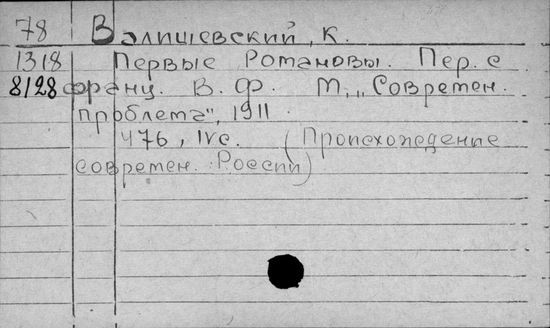 78 Валишевский, К.
1318 Первые Романовы. Пер. с
8128 франц. В. Ф. М., „Современ.
проблемы", 1911.
476, IV с. (Происхождение
современ. России)